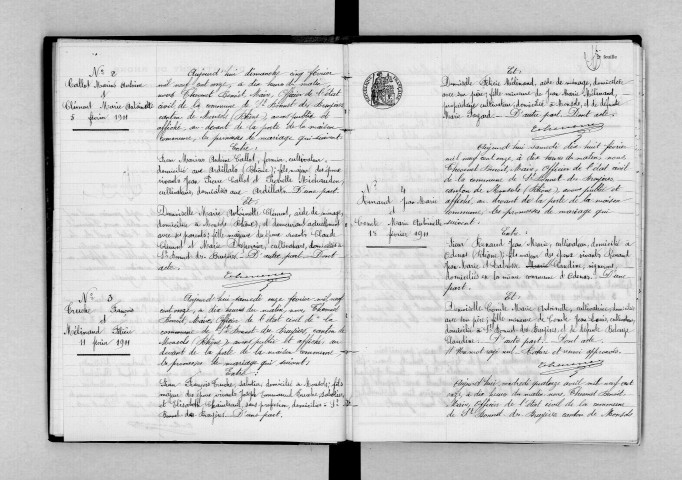 N° 2
Callot Marius Antoine
&
Clément Marie Antoinette
5 février 1911
Aujourd'hui dimanche cinq février
mil neuf cent onze, à dix heures du matin,
nous Thevenet Benoit, Maire, Officier de l'état
civil de la commune de St Bonnet des Bruyères,
canton de Monsols (Rhône), avons publié et
affiché, au devant de la porte de la maison
commune, les promesses de mariage qui suivent:
Entre:
Sieur Marius Antoine Callot, fermier, cultivateur,
domicilié aux Ardillats (Rhône); fils majeur des époux
vivants Jean Pierre Callot et
cultivateurs, domiciliés aux Ardillats. D'une part.
Et:
Demoiselle Marie Antoinette Clément, aide de ménage,
domiciliée à Monsols (Rhône), et demeurant actuellement
avec ses parents; fille majeure des époux vivants Claude
Clément et Marie cultivateurs, domiciliés à
St Bonnet des Bruyères. D'autre part. Dont
acte.
N° 3
François
et
Mélinand Félicie
11 février 1911
Aujourd'hui samedi onze février mil neuf
cent onze, à dix heures du matin, nous Thevenet
Benoit, Maire, Officier de l'état civil de la
commune de St Bonnet des Bruyères, canton de
Monsols (Rhône), avons publié et affiché, au
devant de la porte de la maison commune
les promesses de mariage qui suivent:
Entre:
Sieur François sabotier, domicilié à Monsols; fils
majeur des époux vivants Joseph Emmanuel sabotier
et Elisabeth sans profession, domiciliés à St
Bonnet des Bruyères. D'une part.
feuille
Et:
Demoiselle Félicie Mélinand, aide de ménage, domiciliée
avec son père; fille mineure de Jean Marie Mélinand,
propriétaire cultivateur, domicilié à Monsols, et de défunte
Marie D'autre part. Dont acte.
N° 4
Renard Jean Marie
et
Comte Marie Antoinette
18 février 1911
Aujourd'hui samedi dix huit février
mil neuf cent onze, à dix heures du matin, nous
Thevenet Benoit, Maire, Officier de l'état civil
de la commune de St Bonnet des Bruyères,
canton de Monsols (Rhône), avons publié et
affiché, au devant de la porte de la maison
commune, les promesses de mariage qui
suivent:
Entre:
Sieur Renard Jean Marie, cultivateur, domicilié à
(Rhône); fils majeur des époux vivants Renard
Jean Marie et Claudine, vignerons,
domiciliés en la même commune d' D'une
part.
Et:
Demoiselle Comte Marie Antoinette, cultivatrice, domiciliée
avec son père; fille mineure de Comte Jean Louis, cultivateur,
domicilié à St Bonnet des Bruyères et de défunte
Claudine. D'autre part. Dont acte.
nul. Rature et renvoi approuvés.
Aujourd'hui vendredi quatorze avril mil neuf cent
onze, à dix heures du matin, nous, Thevenet Benoit
Maire, Officier de l'état civil de la commune
de St Bonnet des Bruyères canton de Monsols